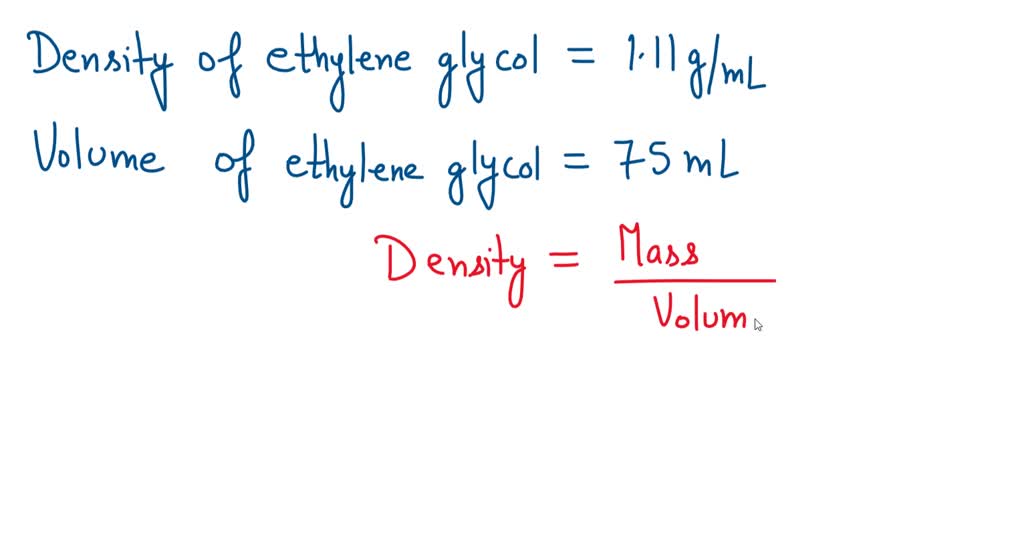 Density of ethylene glycol = 1.11 g/mL
Volume of ethylene glycol = 75 mL
Density = Mass
Volum